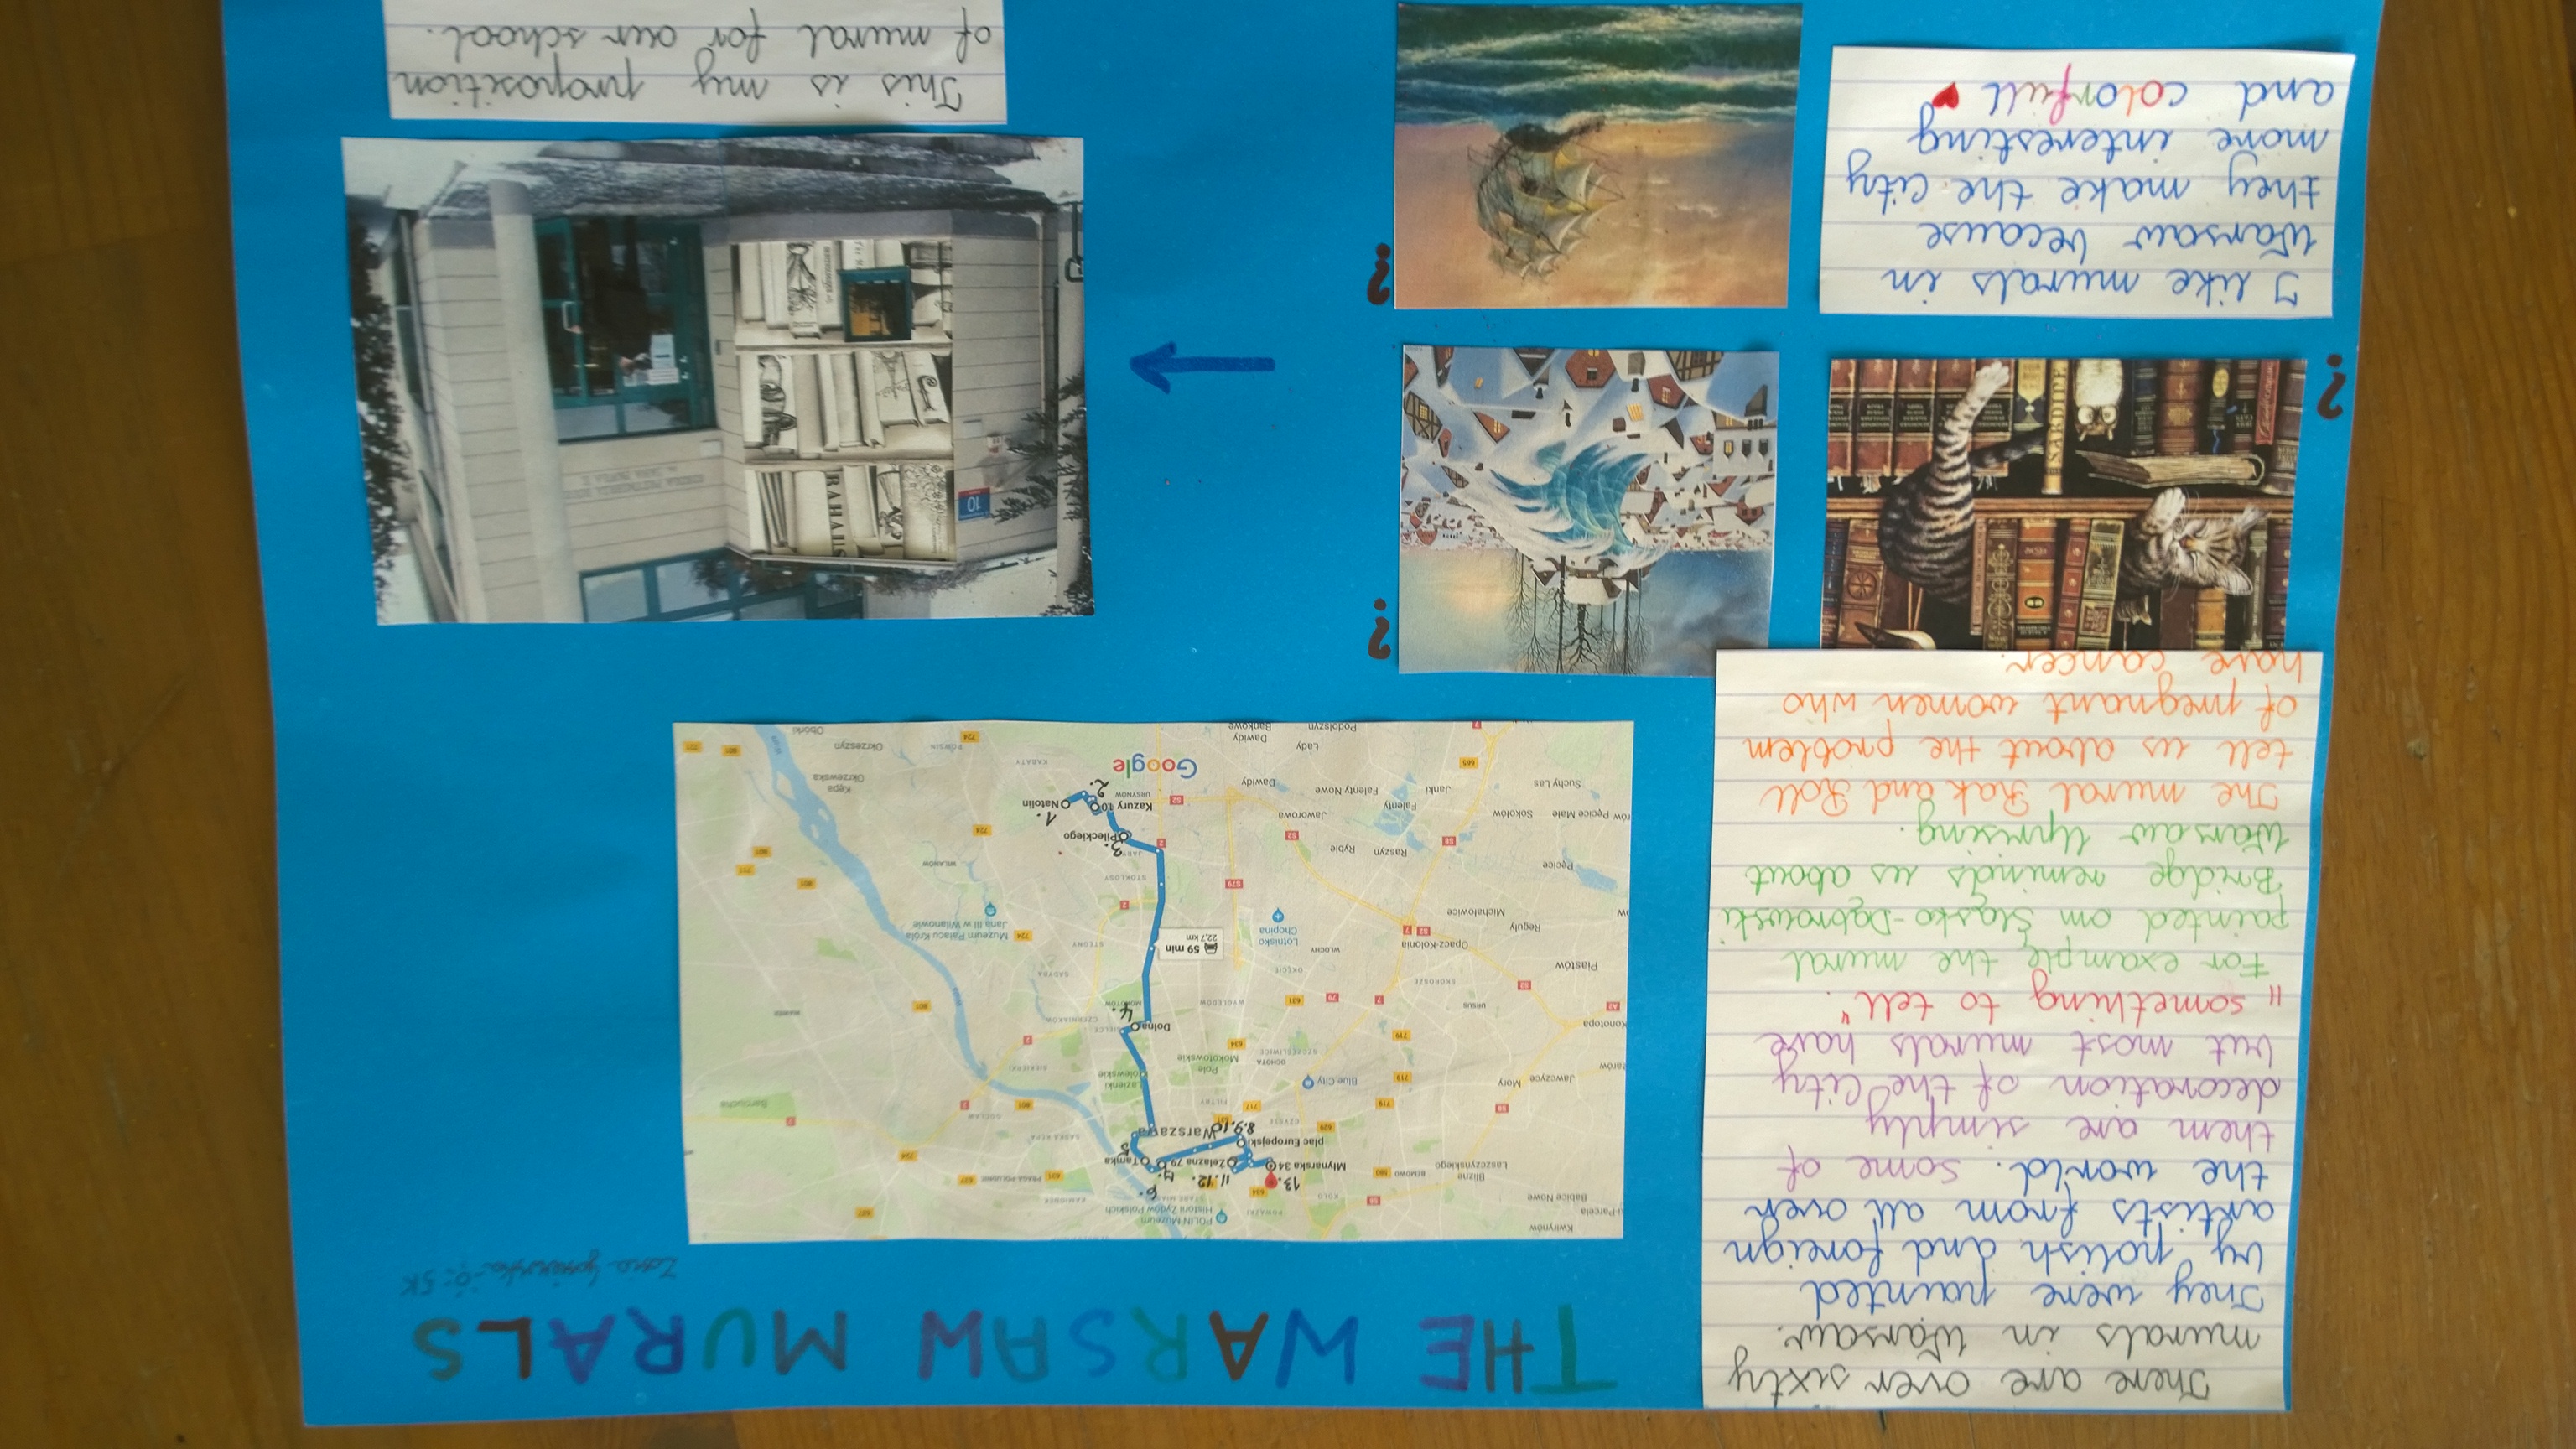 THE WARSAW MURALS
There are over sixty
murals in Warsaw.
They were painted
by polish and foreign
artists from all over
the world. Some of
them are simply
decoration of the city
but most murals have
"something to tell".
For example the mural
painted om Śląsko-Dąbrowski
Bridge reminds us about
Warsaw Uprising.
The mural Rak and Roll
tell us about the problem
of pregnant women who
have cancer.
Kwirynów
Babice Nowe
Blizne
Łaszczyńskiego
BEMOWO
KOŁO
POWĄZKI
POLIN Muzeum
Historii Żydów Polskich
13.
11.12.
7.
6.
Młynarska 34
Żelazna 79
Tamka
5
plac Europejski
8.9.10
Warszawa
SASKA KĘPA
GOCŁAW
CZYSTE
FILTRY
Mory
Jawczyce
Blue City
OCHOTA
SZCZĘŚLIWICE
Pole
Mokotowskie
SIEKIERKI
Konotopa
URSUS
Dolna
4.
SIELCE
CZERNIAKÓW
MOKOTÓW
WYGLĘDÓW
SKOROSZE
Piastów
OKĘCIE
SADYBA
WŁOCHY
Opacz-Kolonia
Lotnisko
Chopina
59 min
22,7 km
STEGNY
Muzeum Pałacu Króla
Jana III w Wilanowie
Reguły
Michałowice
STOKŁOSY
WILANÓW
Pęcice
Raszyn
Rybie
JARY
Pileckiego
3.
Pęcice Małe
Sokołów
Jaworowa
Kazury 10
2.
Natolin
1.
URSYNÓW
Suchy Las
Janki
Falenty
Falenty Nowe
Dawidy
Google
KABATY
Kępa
Okrzewska
Łady
Dawidy
Bankowe
Podolszyn
POWSIN
Okrzeszyn
Obórki
?
SARDINE
?
10
BRAHABIS
I like murals in
Warsaw because
they make the city
more interesting
and colorfull
?
This is my proposition
of mural for our school.